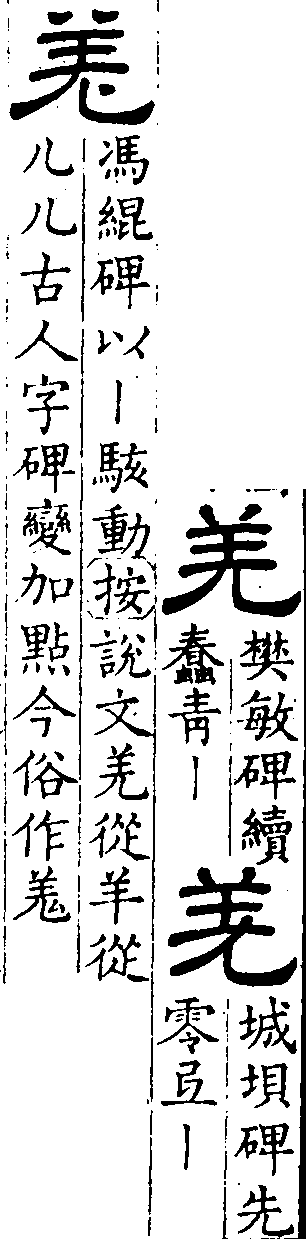 羌
樊敏碑續
蠢青丨
羌
城垻碑先
零丨
羌
馮緄碑以丨駭動按說文羌從羊從
儿儿古人字碑變加點今俗作羗